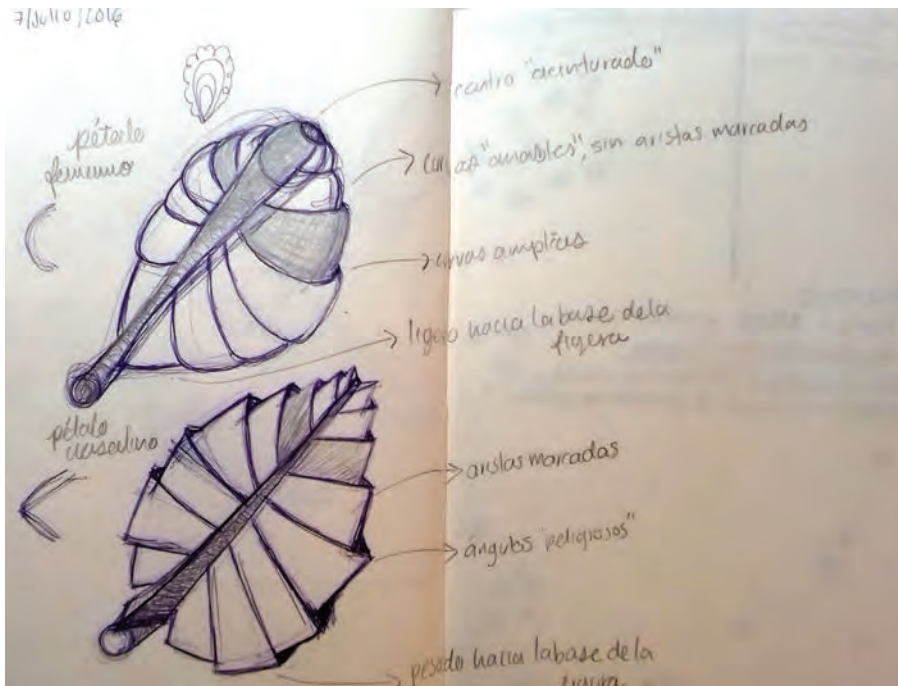 7/Julio/2016
pétalo
femenino
centro "acinturado"
curvas "amables", sin aristas marcadas
curvas amplias
ligero hacia la base de la
figura
pétalo
masculino
aristas marcadas
ángulos "peligrosos"
pesado hacia la base de la
figura